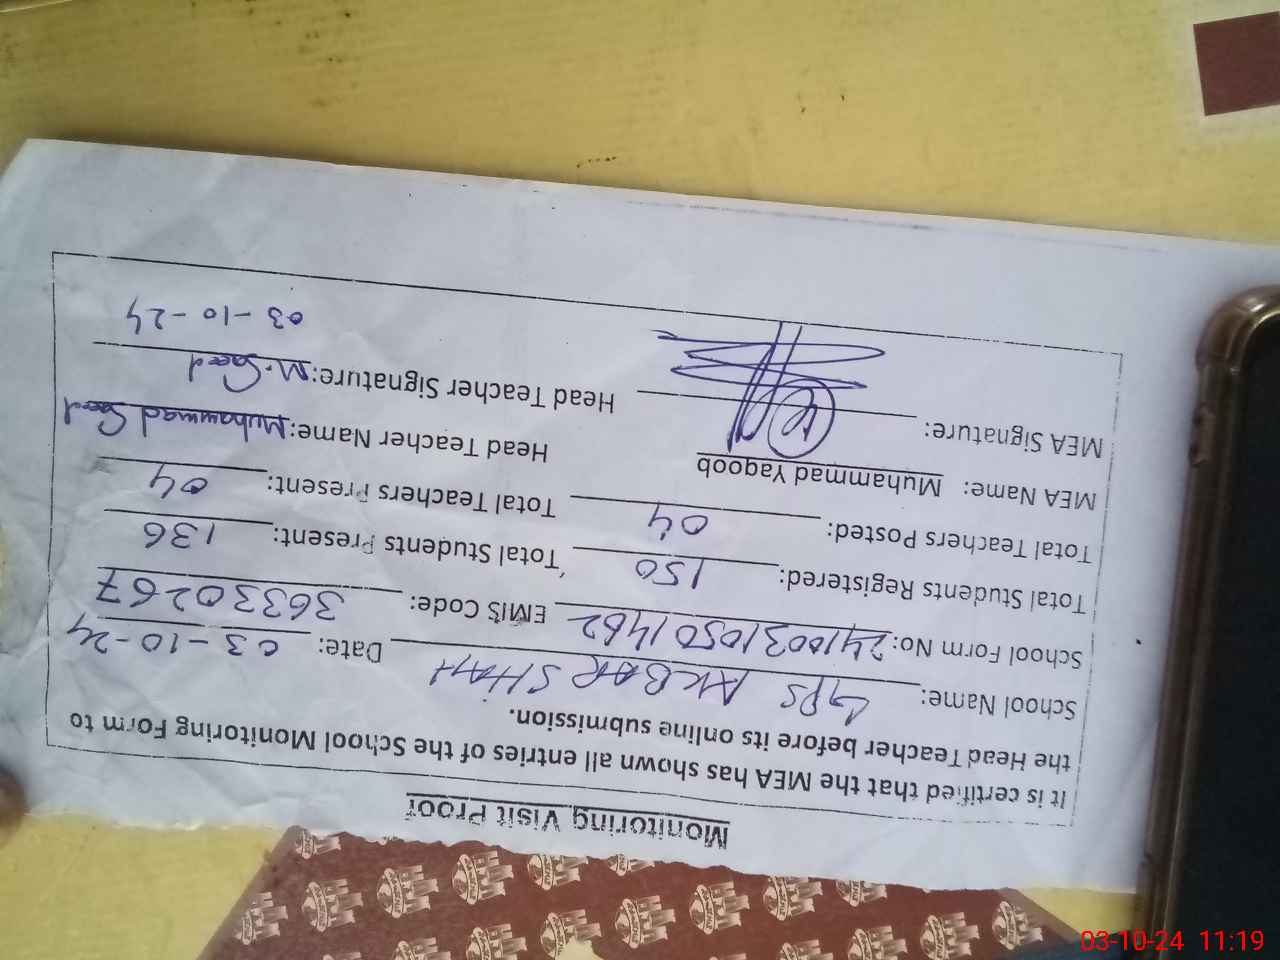 Monitoring Visit Proof
It is certified that the MEA has shown all entries of the School Monitoring Form to
the Head Teacher before its online submission.
School Name: GPS AKBAR SHAH Date: 03-10-24
School Form No: 24100310501462 EMIS Code: 36330267
Total Students Registered: 150 Total Students Present: 136
Total Teachers Posted: 04 Total Teachers Present: 04
MEA Name: Muhammad Yaqoob Head Teacher Name: Muhammad Saeed
MEA Signature: Head Teacher Signature: M. Saeed
03-10-24
03-10-24 11:19